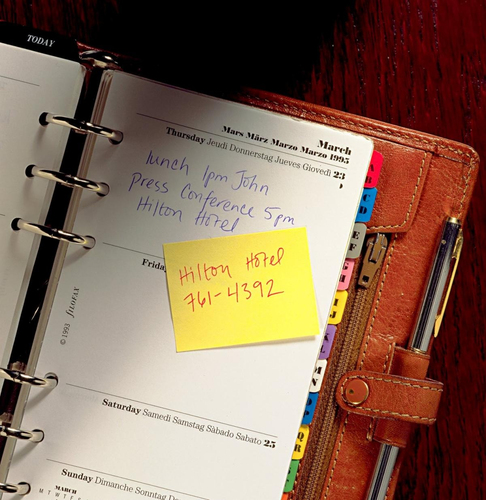 TODAY
March
Mars März Marzo Marzo 1995
Thursday Jeudi Donnerstag Jueves Giovedi 23
lunch 1pm John
Press Conference 5pm
Hilton Hotel
Hilton Hotel
761-4392
© 1993 FILOFAX
Saturday Samedi Samstag Sàbado Sabato 25
Sunday Dimanche Sonntag
MARCH
M T W T F
A
B
C
D
E
F
G
I
J
M
N
Q
R